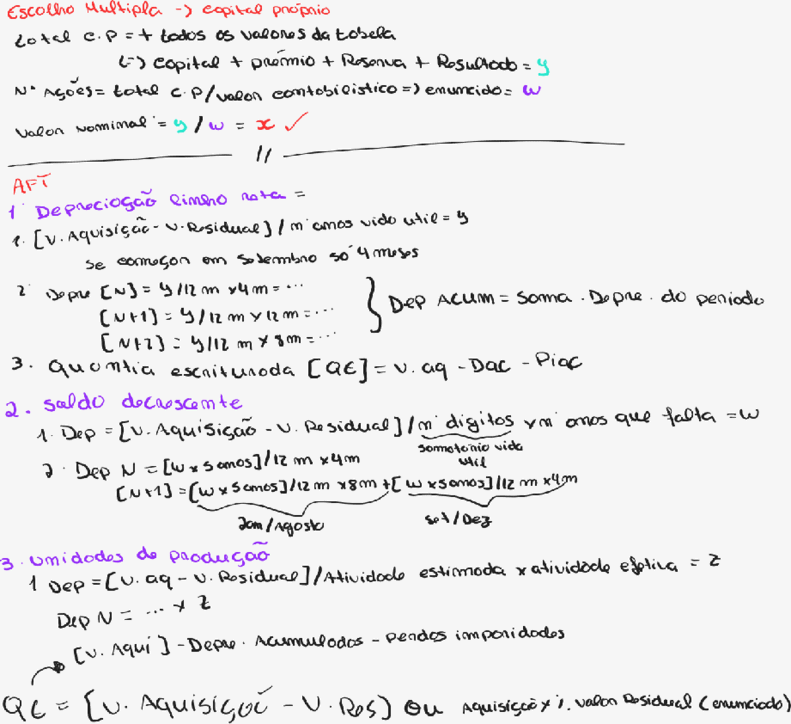 Escolha Multipla -> capital próprio
total c.p = + todos os valores da tabela
(-> capital + prémio + Reserva + Resultado = y
Nº Ações = total c.p / valor contabilistico => enunciado = w
valor nominal = y / w = x ✓
//
AFT
1. Depreciação linha reta =
1. [V. Aquisição - V. Residual] / nº anos vida util = y
se começar em setembro só 4 meses
2. Depre [N] = y/12 m x 4m = ...
[N+1] = y/12 m x 12 m = ...
[N+2] = y/12 m x 8m = ...
} Dep Acum = soma. Depre. do periodo
3. Quantia escriturada [QE] = v. aq - Dac - Piac
2. saldo decrescente
1. Dep = [V. Aquisição - V. Residual] / nº digitos x nº anos que falta = w
somatório vida
util
2. Dep N = [w x 5 anos] / 12 m x 4m
[N+1] = [w x 5 anos] / 12 m x 8m + [w x 5 anos] / 12 m x 4m
Jan/Agosto
set/Dez
3. Unidades de produção
1 Dep = [V. aq - V. Residual] / Atividade estimada x atividade efetiva = z
Dep N = ... x z
[V. Aqui] - Depre. Acumuladas - perdas imparidades
QE = [V. Aquisição - V. Res] ou Aquisição x %. valor Residual (enunciado)